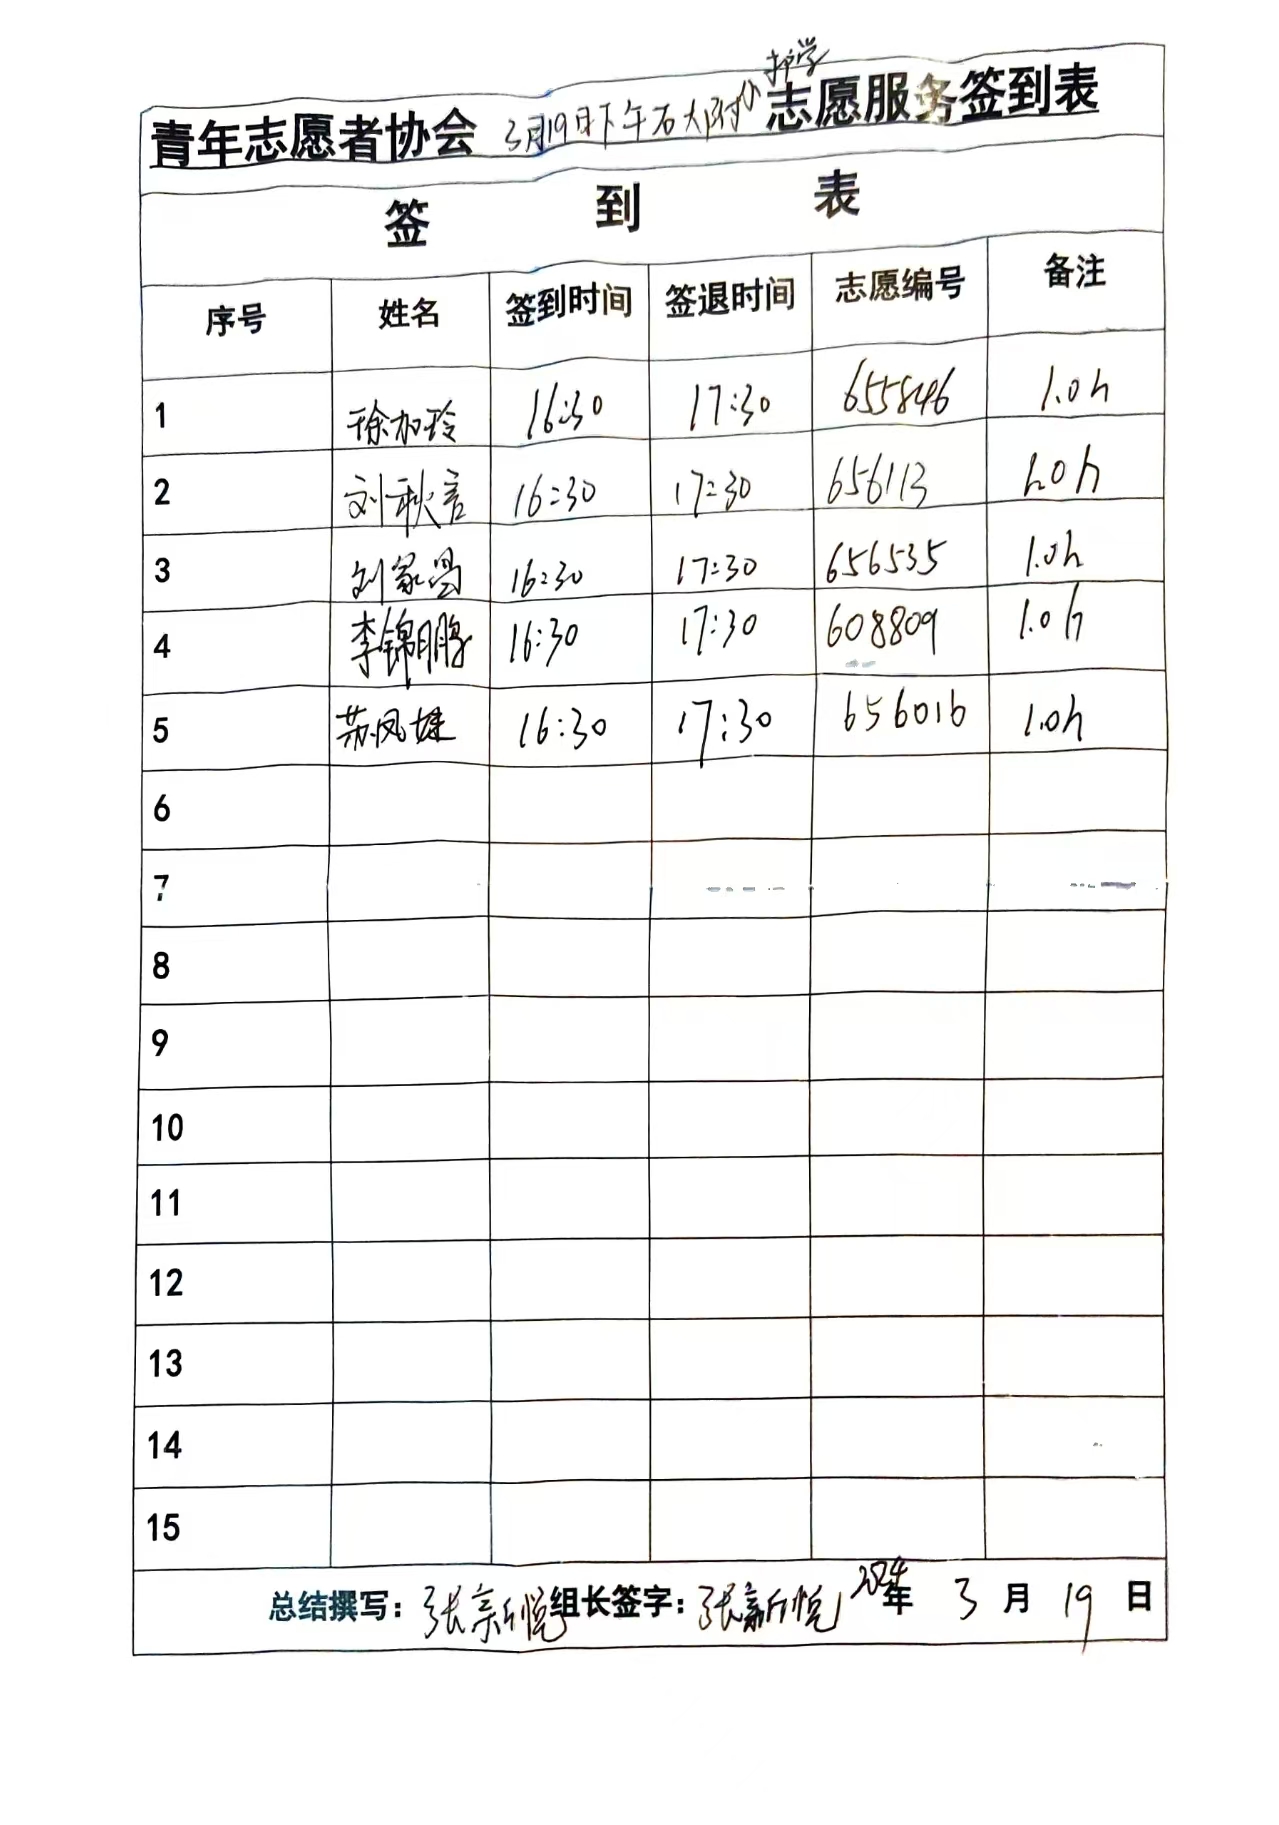 护学
青年志愿者协会 3月19日下午石大附小 志愿服务签到表
签 到 表
序号 姓名 签到时间 签退时间 志愿编号 备注
1 徐加玲 16:30 17:30 655846 1.0h
2 刘秋言 16:30 17:30 656113 1.0h
3 刘家 16:30 17:30 656535 1.0h
4 李锦鹏 16:30 17:30 608809 1.0h
5 苏凤 16:30 17:30 656016 1.0h
6
7
8
9
10
11
12
13
14
15
总结撰写: 张新悦 组长签字: 张新悦 2024年 3 月 19 日